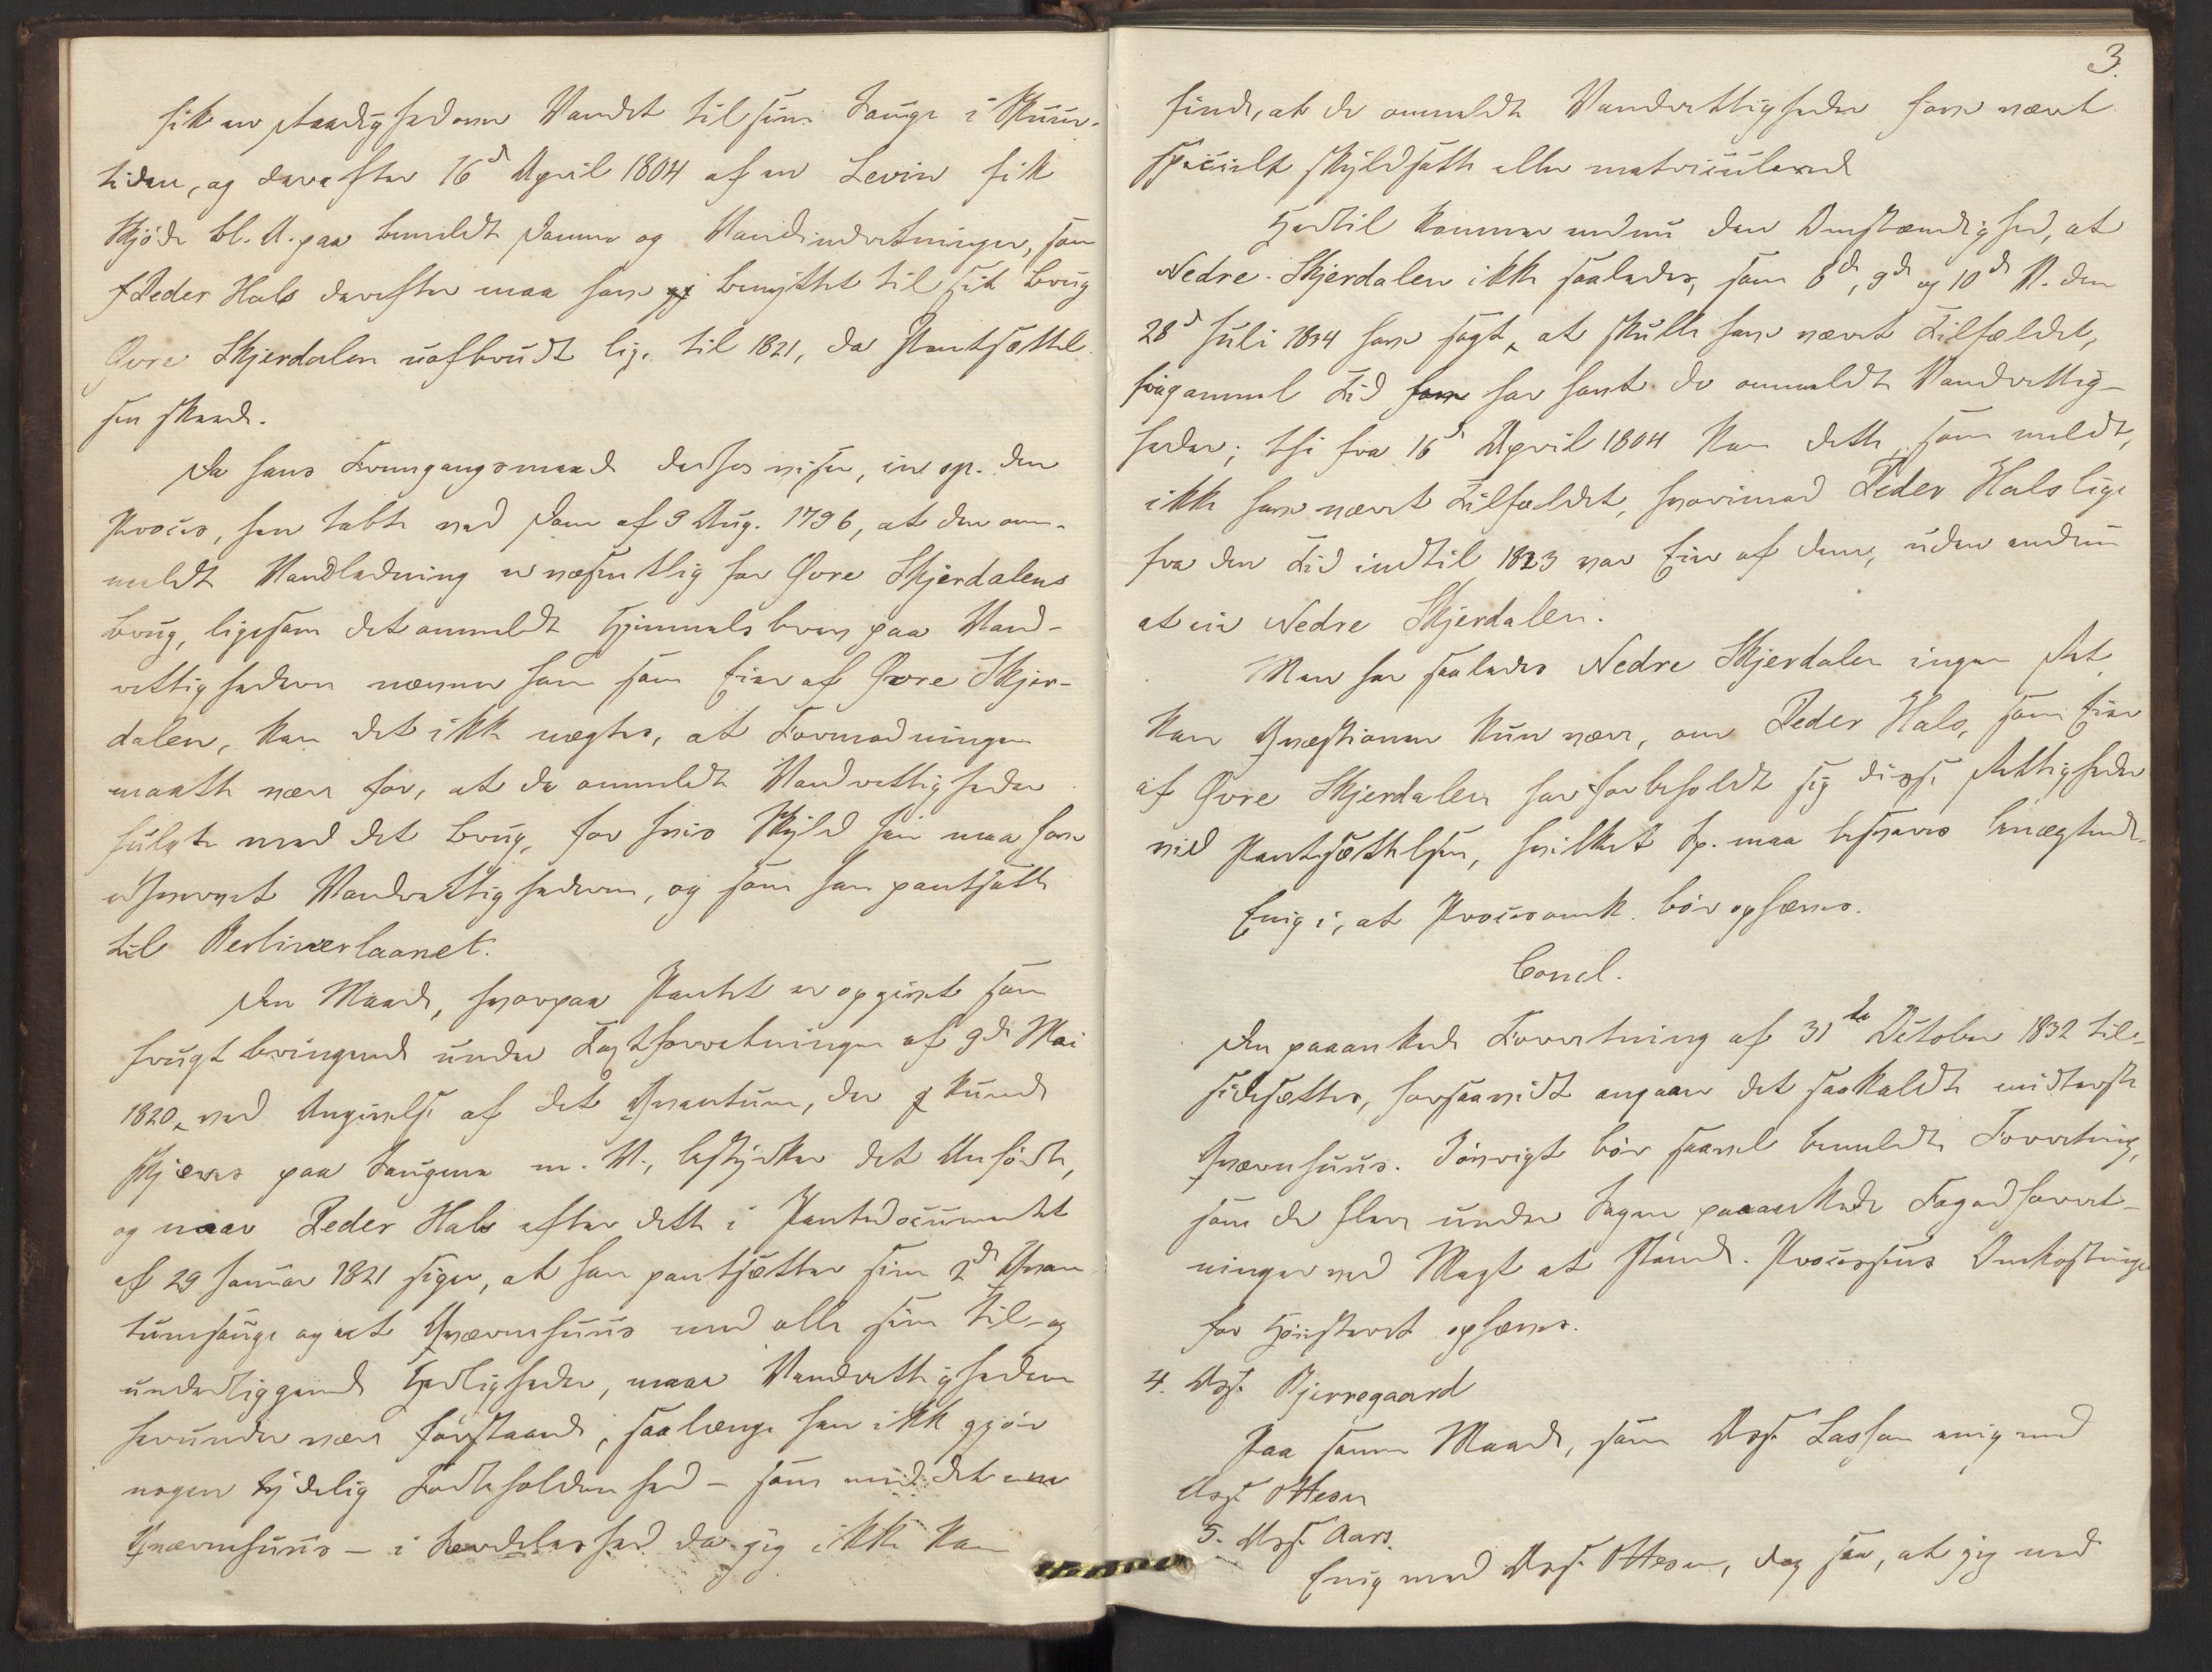 fik en Raadighed over Vandet til sine Sauge i Skuur-
tiden, og derefter 16d April 1804 af en Levin fik
Skjöde bl. A. paa bemeldte Damme og Vandindretninger, som
Peder Hals derefter maa have benyttet til sit Brug
Øvre Skjerdalen uafbrudt lige til 1821, da Pantsættel-
sen skeede.
Da hans Formgangsmand derhos viser, in sp. den
Proces, han tabte ved Dom af 9 Aug. 1796, at den om-
meldte Vandledning er væsentlig for Øvre Skjerdalens
Brug, ligesom det ommeldte Hjemmelsbrev paa Vand-
rettighederne nævner ham som Eier af Øvre Skjer-
dalen, kan det ikke nægtes, at Formodningen
maatte være for, at de ommeldte Vandrettigheder
fulgte med det Brug, for hvis Skyld han maa have
erhvervet Vandrettighederne, og som han pantsatte
til Berlinerlaanet.
Den Maade, hvorpaa Pantet er opgivet som
frugtbringende under Taxtforretningen af 9de Mai
1820, ved Angivelse af det Qvantum, der kunde
skjæres paa Saugene m. V., bestyrker det Anførte,
og naar Peder Hals efter dette i Pantedocumentet
af 29 Januar 1821 siger, at han pantsætter sine 2de Qvan-
tumsauge og et Qværnhuus med alle sine til- og
underliggende Herligheder, maae Vandrettighederne
herunder være forstaaede, saalænge han ikke gjör
nogen tydelig Forbeholdenhed – som med det ene
Qværnhuus – i Særdeleshed da jeg ikke kan
3.
finde, at de ommeldte Vandrettigheder have været
specielt skyldsatte eller matriculerede
Hertil kommer endnu den Omstændighed, at
Nedre Skjerdalen ikke saaledes, som 8d, 9d og 10d V. den
28d Juli 1834 have sagt, at skulle have været Tilfældet,
fra gammel Tid har havt de ommeldte Vandrettig-
heder; thi fra 16d April 1804 kan dette, som meldt,
ikke have været Tilfældet, hvorimod Peder Hals lige
fra den Tid indtil 1823 var Eier af dem, uden endnu
at eie Nedre Skjerdalen.
Men har saaledes Nedre Skjerdalen ingen Ret,
kan Qvæstionen kun være, om Peder Hals, som Eier
af Øvre Skjerdalen har forbeholdt sig disse Rettigheder
ved Pantsættelsen, hvilket Sp. maa besvares benægtende.
Enig i, at Procesomk. bör ophæves.
Concl.
Den paaankede Forretning af 31te October 1832 til-
sidesættes, forsaavidt angaaer det saakaldte midterste
Qværnhuus. Iövrigt bör saavel bemeldte Forretning,
som de flere under Sagen paaankede Fogedforret-
ninger ved Magt at stande. Processens Omkostninger
for Höiesteret ophæves.
4. Ass. Bjerregaard
Paa samme Maade, som Ass. Lasson enig med
Ass. Ottesen
5. Ass. Aars.
Enig med Ass. Ottesen, dog saa, at jeg med